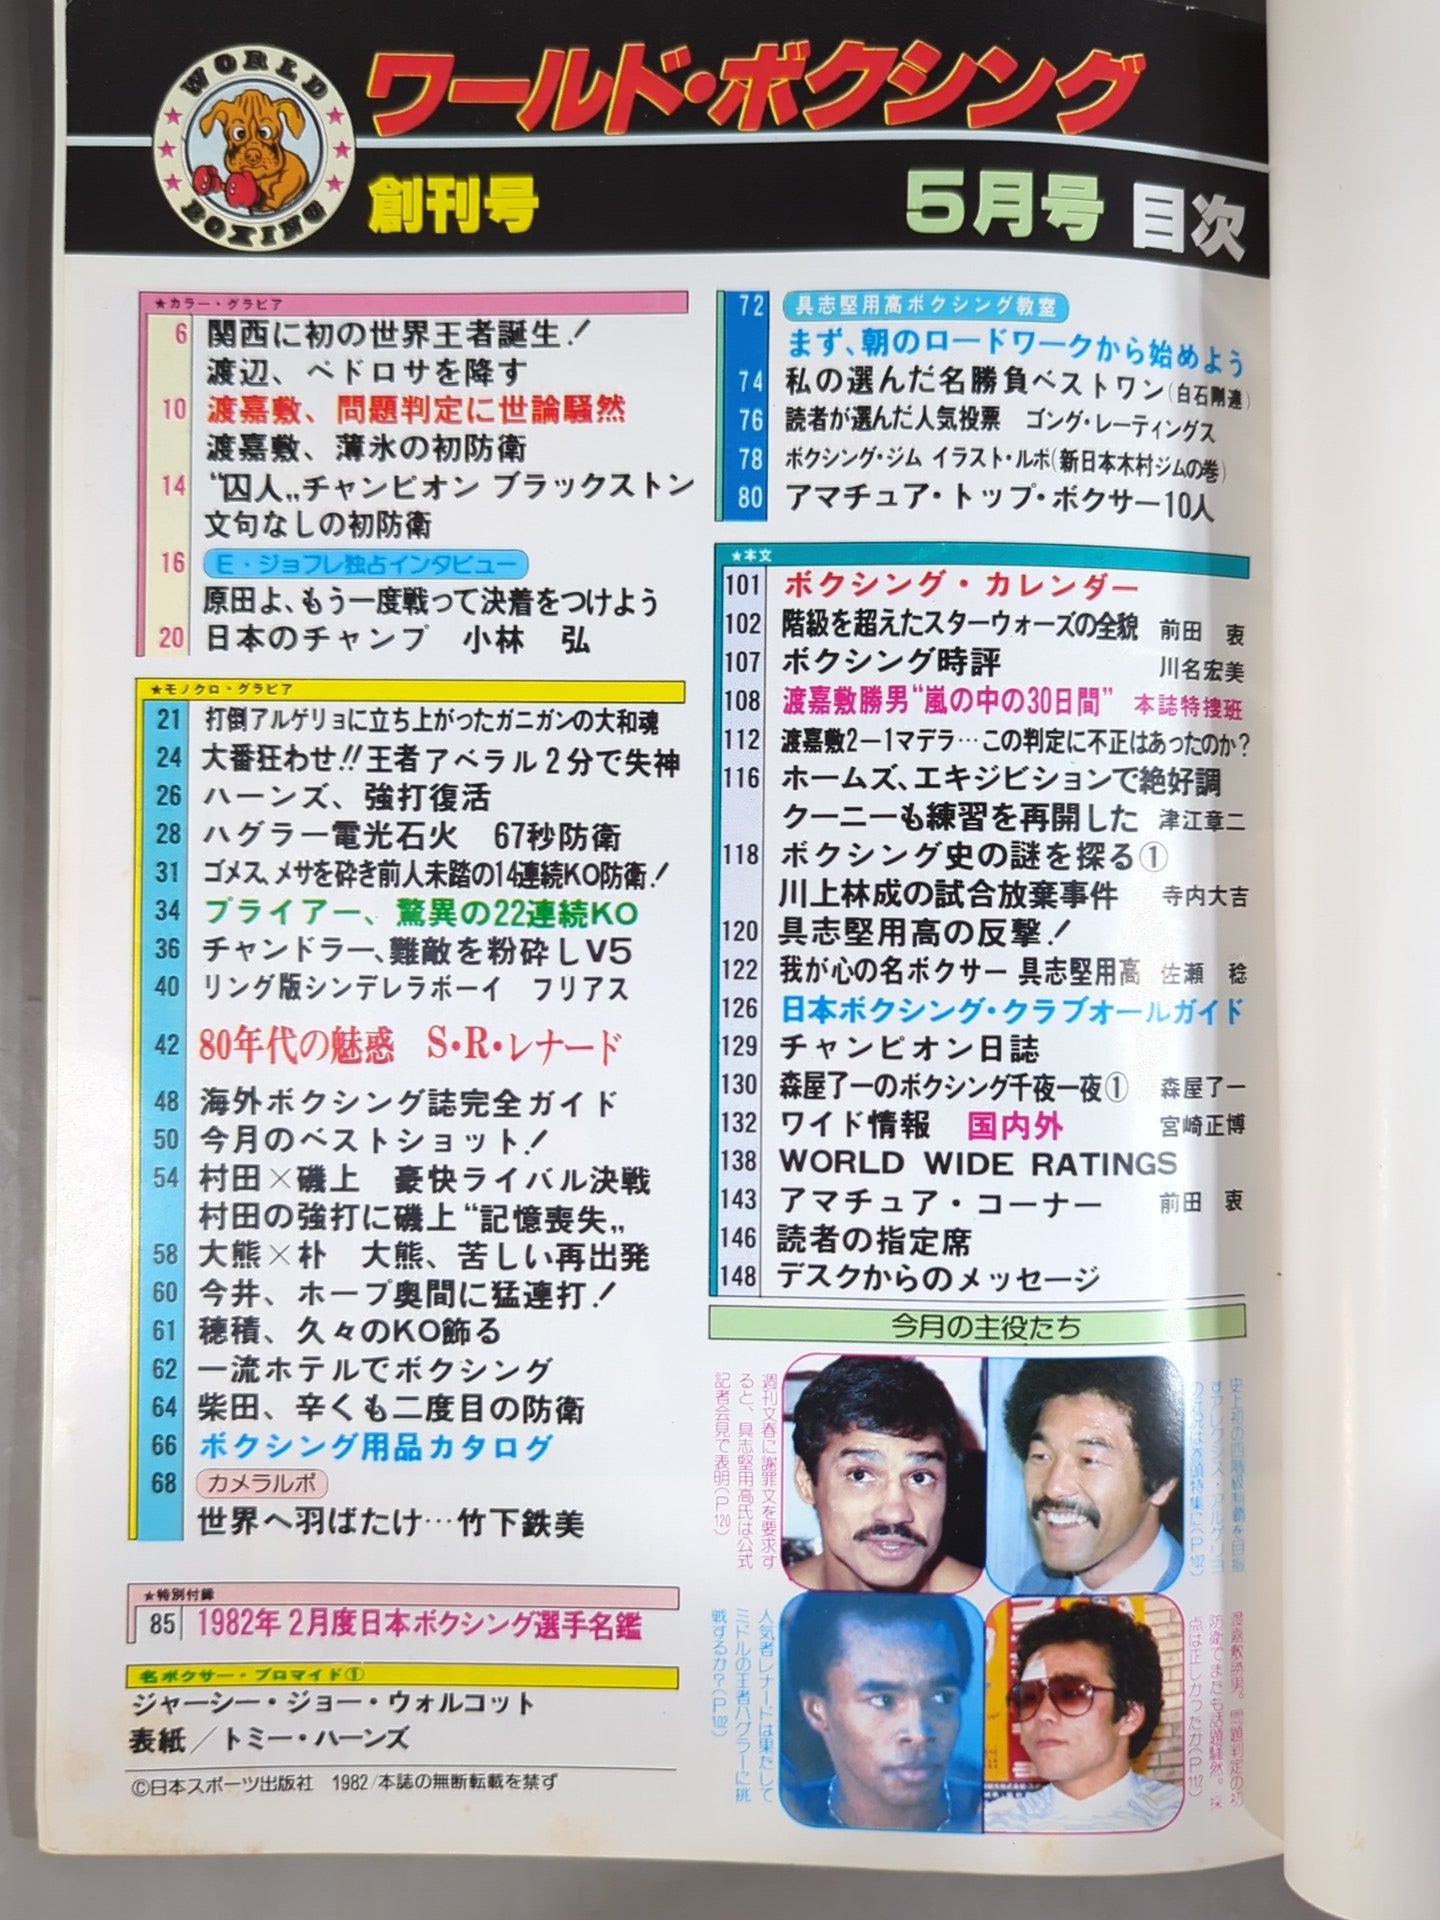 WORLD BOXING
ワールド・ボクシング
創刊号
5月号 目次
★カラー・グラビア
6 関西に初の世界王者誕生!
渡辺、ペドロサを降す
10 渡嘉敷、問題判定に世論騒然
渡嘉敷、薄氷の初防衛
14 “囚人„チャンピオン ブラックストン
文句なしの初防衛
16 E・ジョフレ独占インタビュー
原田よ、もう一度戦って決着をつけよう
20 日本のチャンプ 小林 弘
★モノクロ・グラビア
21 打倒アルゲリョに立ち上がったガニガンの大和魂
24 大番狂わせ!!王者アベラル2分で失神
26 ハーンズ、強打復活
28 ハグラー電光石火 67秒防衛
31 ゴメス、メサを砕き前人未踏の14連続KO防衛!
34 プライアー、驚異の22連続KO
36 チャンドラー、難敵を粉砕しV5
40 リング版シンデレラボーイ フリアス
42 80年代の魅惑 S・R・レナード
48 海外ボクシング誌完全ガイド
50 今月のベストショット!
54 村田×磯上 豪快ライバル決戦
村田の強打に磯上“記憶喪失„
58 大熊×朴 大熊、苦しい再出発
60 今井、ホープ奥間に猛連打!
61 穂積、久々のKO飾る
62 一流ホテルでボクシング
64 柴田、辛くも二度目の防衛
66 ボクシング用品カタログ
68 カメラルポ
世界へ羽ばたけ…竹下鉄美
★特別付録
85 1982年2月度日本ボクシング選手名鑑
名ボクサー・ブロマイド①
ジャーシー・ジョー・ウォルコット
表紙/トミー・ハーンズ
©日本スポーツ出版社 1982/本誌の無断転載を禁ず
72 具志堅用高ボクシング教室
まず、朝のロードワークから始めよう
74 私の選んだ名勝負ベストワン(白石剛達)
76 読者が選んだ人気投票 ゴング・レーティングス
78 ボクシング・ジム イラスト・ルポ(新日本木村ジムの巻)
80 アマチュア・トップ・ボクサー10人
★本文
101 ボクシング・カレンダー
102 階級を超えたスターウォーズの全貌 前田 衷
107 ボクシング時評 川名宏美
108 渡嘉敷勝男“嵐の中の30日間” 本誌特捜班
112 渡嘉敷2−1マデラ…この判定に不正はあったのか?
116 ホームズ、エキジビションで絶好調
クーニーも練習を再開した 津江章二
118 ボクシング史の謎を探る①
川上林成の試合放棄事件 寺内大吉
120 具志堅用高の反撃!
122 我が心の名ボクサー 具志堅用高 佐瀬 稔
126 日本ボクシング・クラブオールガイド
129 チャンピオン日誌
130 森屋了一のボクシング千夜一夜① 森屋了一
132 ワイド情報 国内外 宮崎正博
138 WORLD WIDE RATINGS
143 アマチュア・コーナー 前田 衷
146 読者の指定席
148 デスクからのメッセージ
今月の主役たち
史上初の四階級制覇を目指
すアレクシス・アルゲリョ
の近況は巻頭特集に(P102)
週刊文春に謝罪文を要求す
ると、具志堅用高氏は公式
記者会見で表明(P120)
渡嘉敷勝男。問題判定の初
防衛でまたも話題騒然。採
点は正しかったか(P112)
人気者レナードは果たして
ミドルの王者ハグラーに挑
戦するか?(P102)